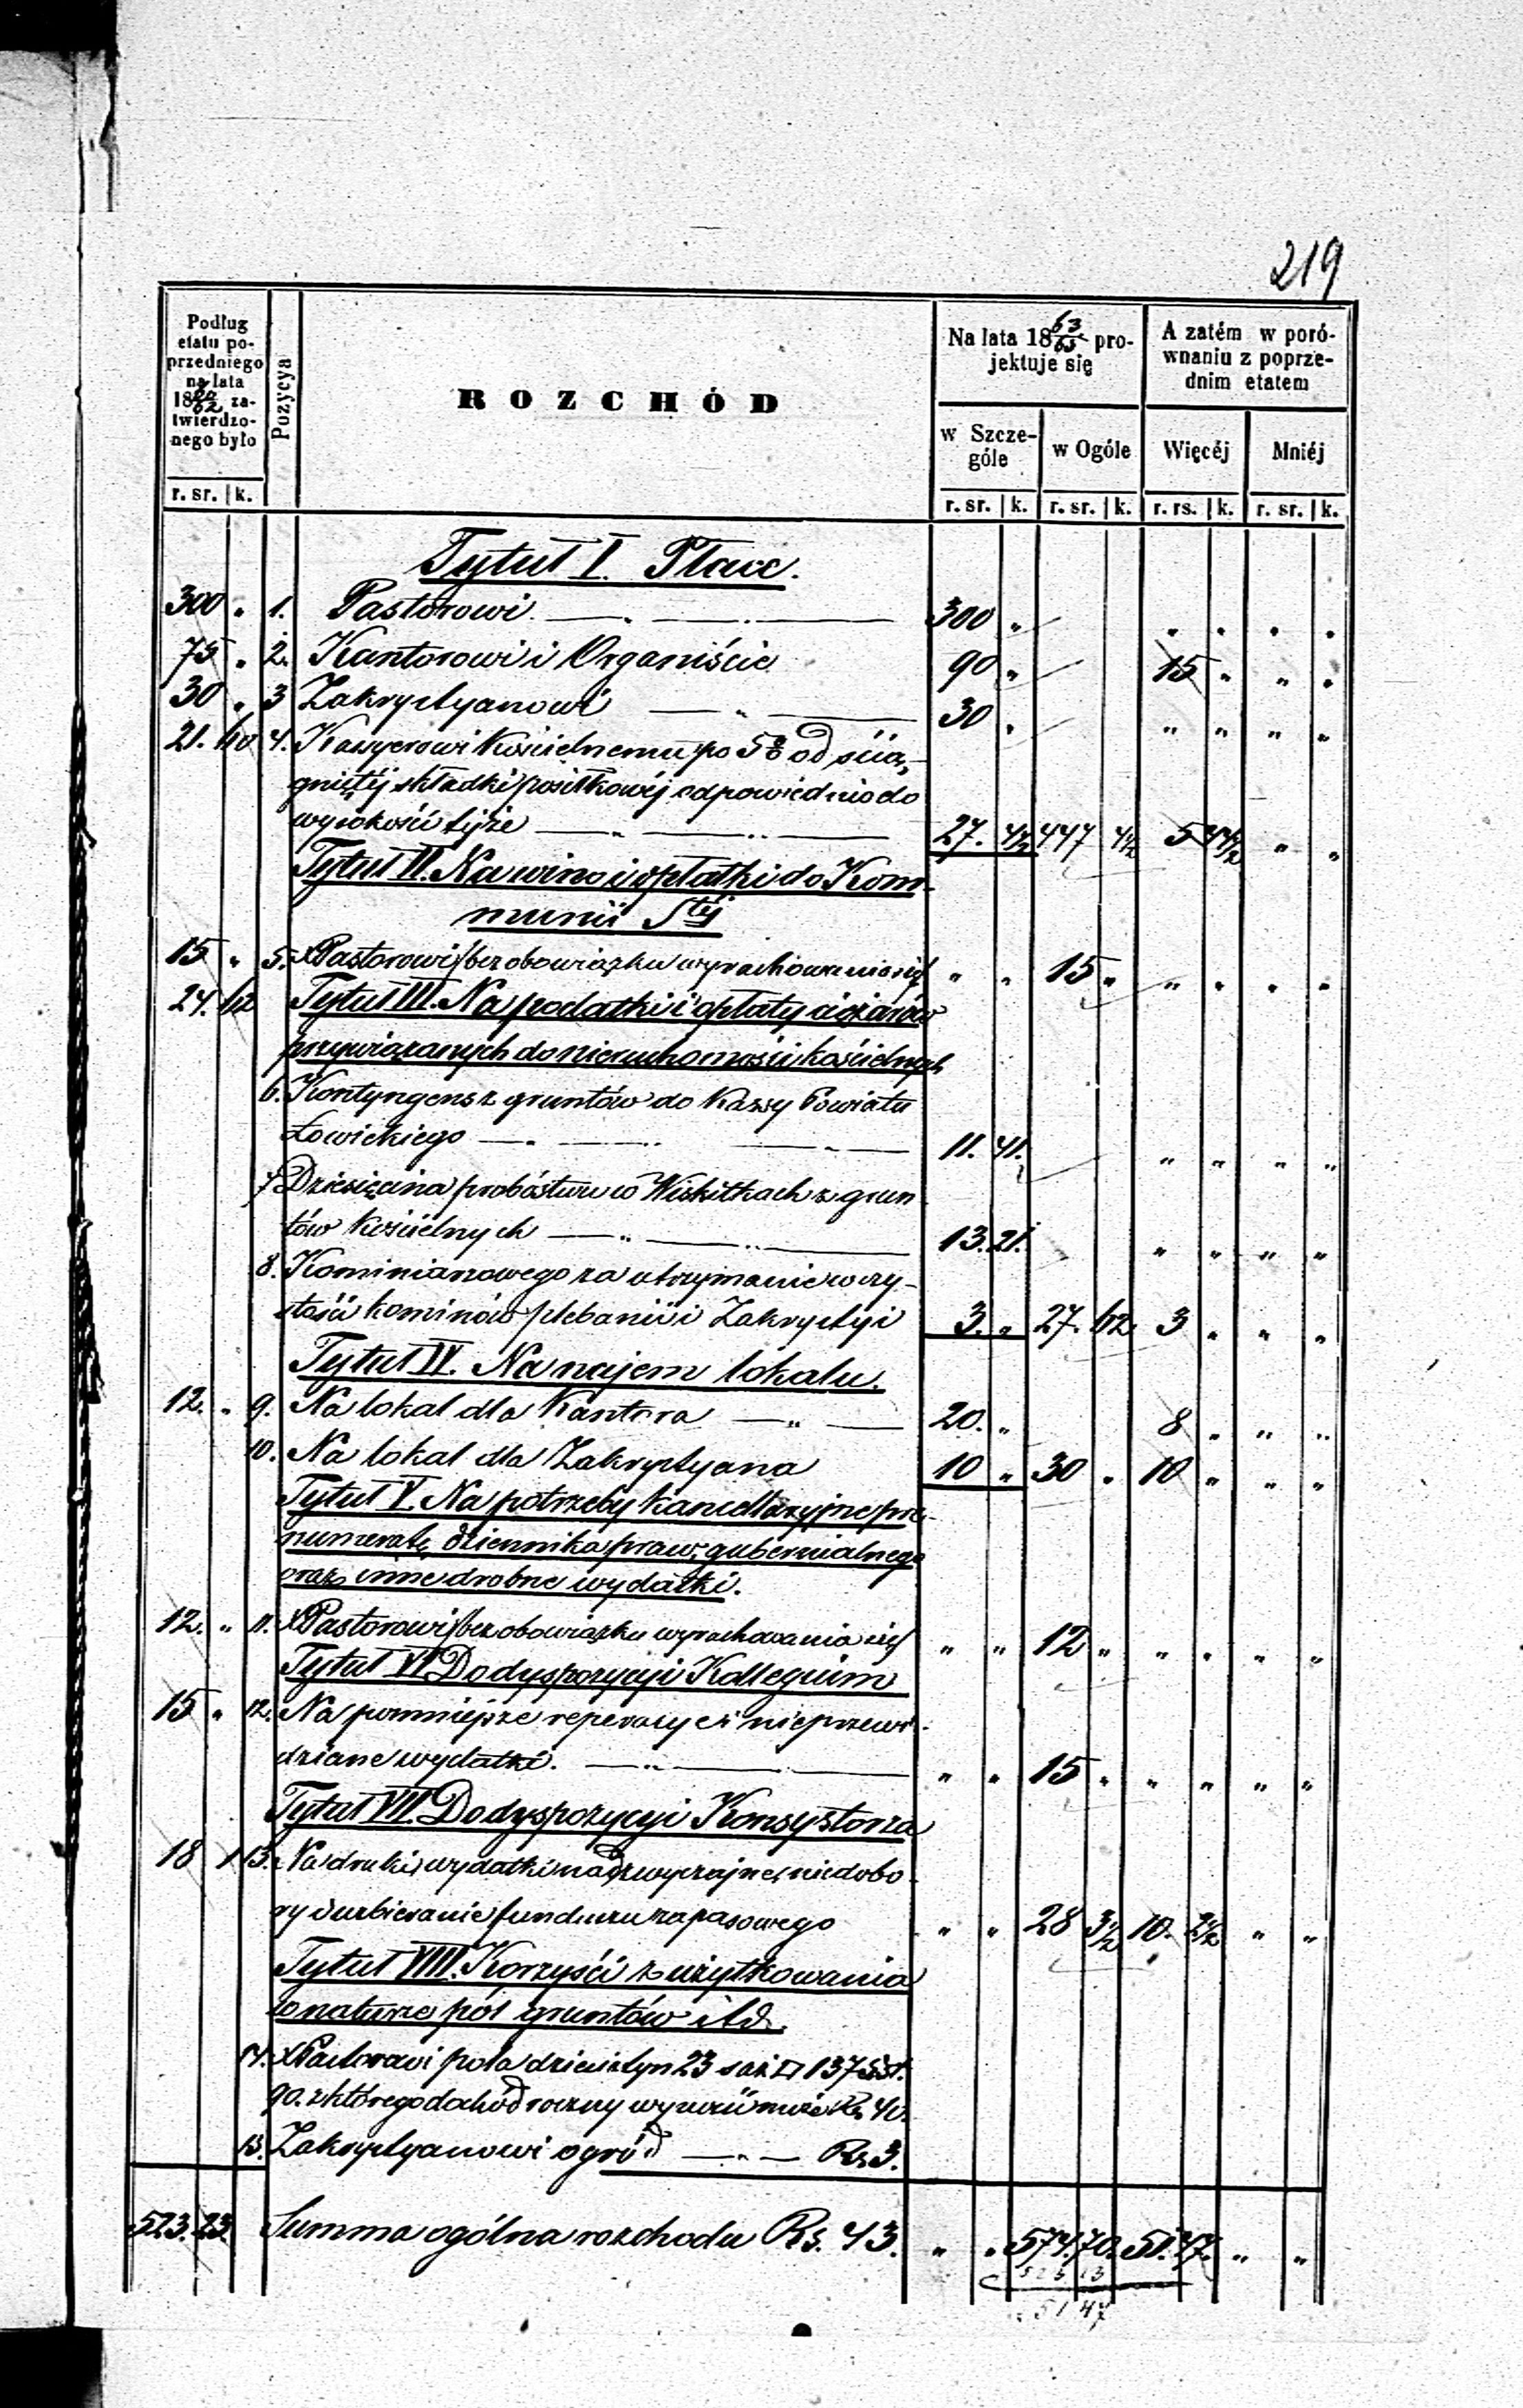 219
Podług etatu poprzedniego na lata 1860/62 zatwierdzonego było
Pozycya
ROZCHÓD
Na lata 1863/65 projektuje się
A zatém w porównaniu z poprzednim etatem
w Szczególe
w Ogóle
Więcéj
Mniéj
r. sr. k.
r. sr. k. r. sr. k. r. rs. k. r. sr. k.
Tytuł I. Płace.
300 " 1. Pastorowi 300 " " " " "
75 " 2. Kantorowi i Organiście 90 " 15 " " "
30 " 3 Zakrystyanowi 30 " " " " "
21. 60 4. Kasyerowi Kościelnemu po 5% od ścią-
gniętéj składki posiłkowéj odpowiednio do
wysokości téjże 27. 4½ 447 4½ 5 44½ " "
Tytuł II. Na wino i opłatki do Kom-
munii Stéj
15 " 5. XPastorowi /bez obowiązku wyrachowania się/ " " 15 " " " " "
24. 62 Tytuł III. Na podatki i opłaty ciężarów
przywiązanych do nieruchomości kościelnych
6. Kontyngens z gruntów do Kassy Powiatu
Łowickiego 11. 41. " " " "
7. Dziesięcina probóstwu w Wiskitkach z grun
tów Kościelnych 13. 21. " " " "
8. Kominiarzowego za utrzymanie w czy-
stości kominów plebanii i Zakrystyi 3. " 27. 62 3 " " "
Tytuł IV. Na najem lokalu.
12. " 9. Na lokal dla Kantora 20. " 8 " " "
10. Na lokal dla Zakrystyana 10 " 30 " 10 " " "
Tytuł V. Na potrzeby kancellaryjne pre-
numeratę dziennika praw, gubernialnego
oraz inne drobne wydatki.
12. " 11. XPastorowi /bez obowiązku wyrachowania się/ " " 12 " " " " "
Tytuł VI Do dyspozycyi Kollegium
15 " 12. Na pomniejsze reperacye i nieprzewi-
dziane wydatki. " " 15 " " " " "
Tytuł VII. Do dyspozycyi Konsystorza
18 1 13. Na druki, wydatki nadzwyczajne, niedobo-
ry i uzbieranie funduszu zapasowego " " 28 3½ 10. 2½ " "
Tytuł VIII. Korzyści z użytkowania
w naturze pól gruntów itd.
14. XPastorowi pola dziesiatyn 23 saż □ 137
90. z którego dochód roczny wynosić może Rs. 40.
15. Zakrystyanowi ogród Rs. 3.
523. 23. Summa ogólna rozchodu Rs. 43. " " 574. 70. 51. 47. " "
523 23
51 47